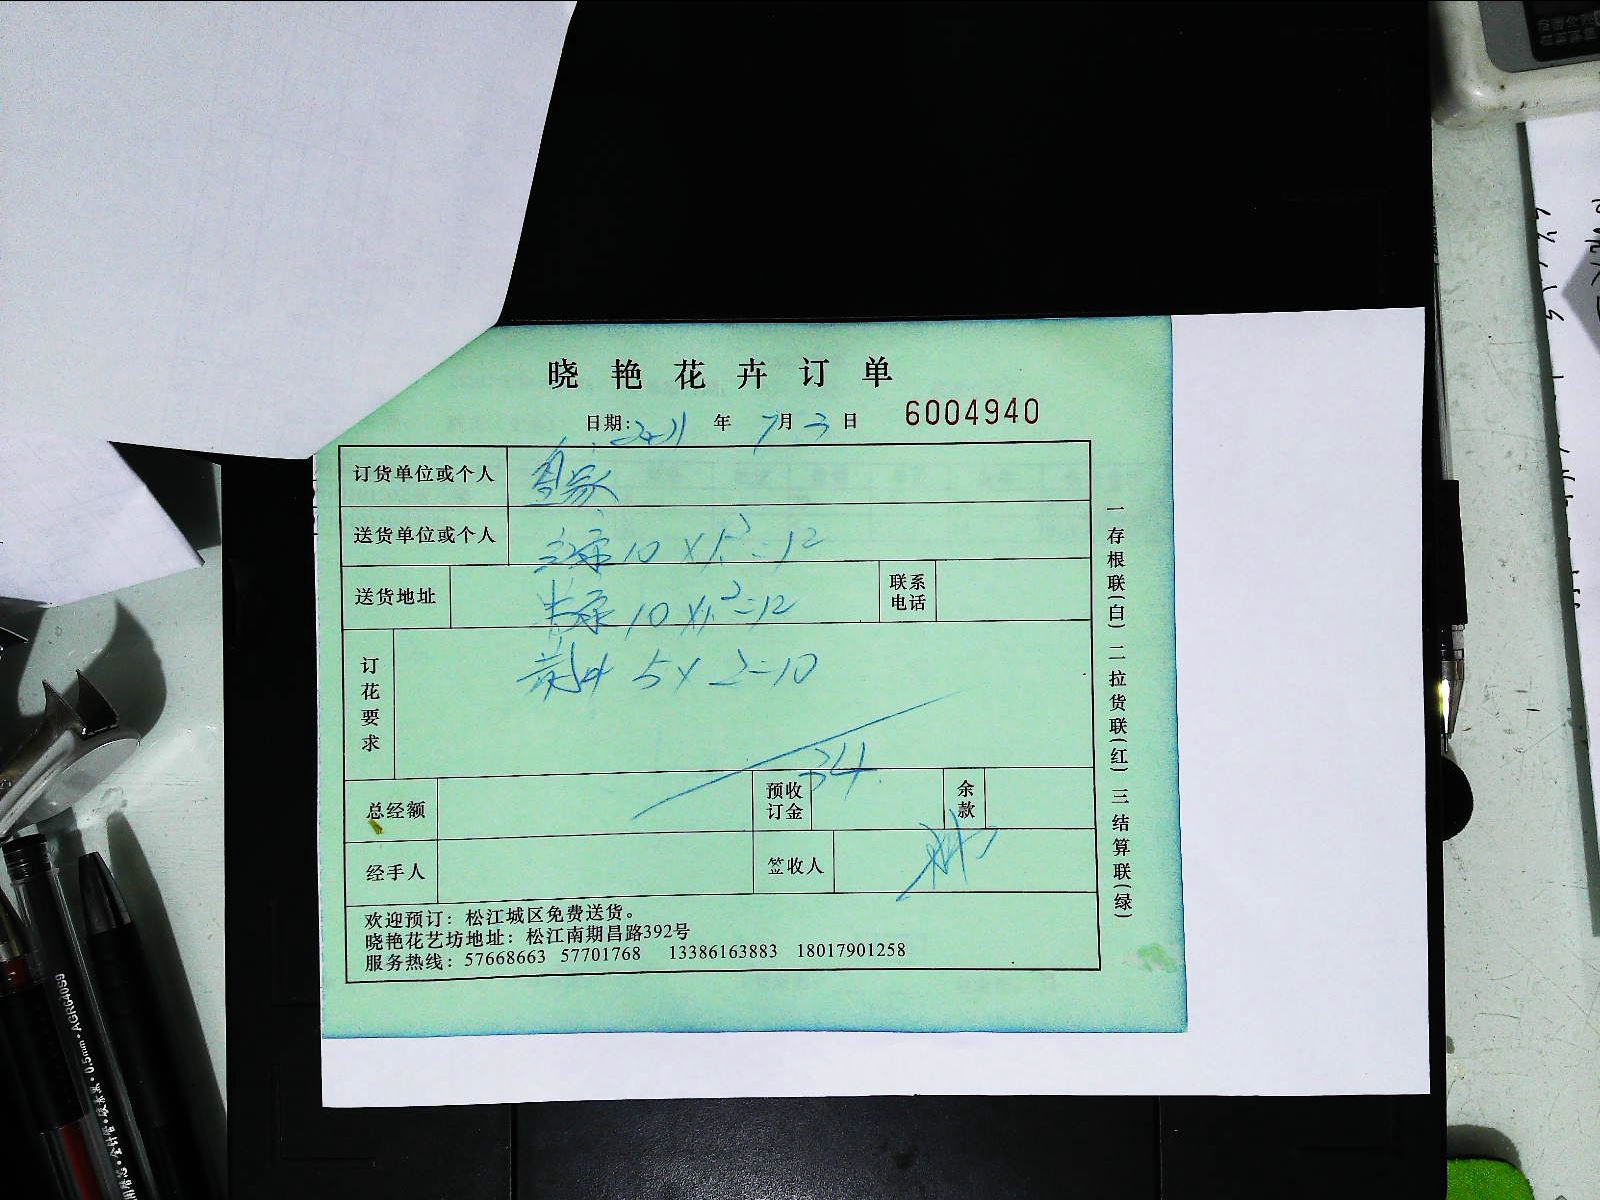 晓艳花卉订单
日期: 2021 年 7月 3 日 6004940
订货单位或个人
送货单位或个人 10 × 1.2 = 12
送货地址 10 × 1.2 = 12 联系电话
订花要求 5 × 2 = 10
34
总经额 预收订金 余款
经手人 签收人
欢迎预订：松江城区免费送货。
晓艳花艺坊地址：松江南期昌路392号
服务热线：57668663 57701768 13386163883 18017901258
一存根联(白) 二拉货联(红) 三结算联(绿)
0.5mm • AGR640S9